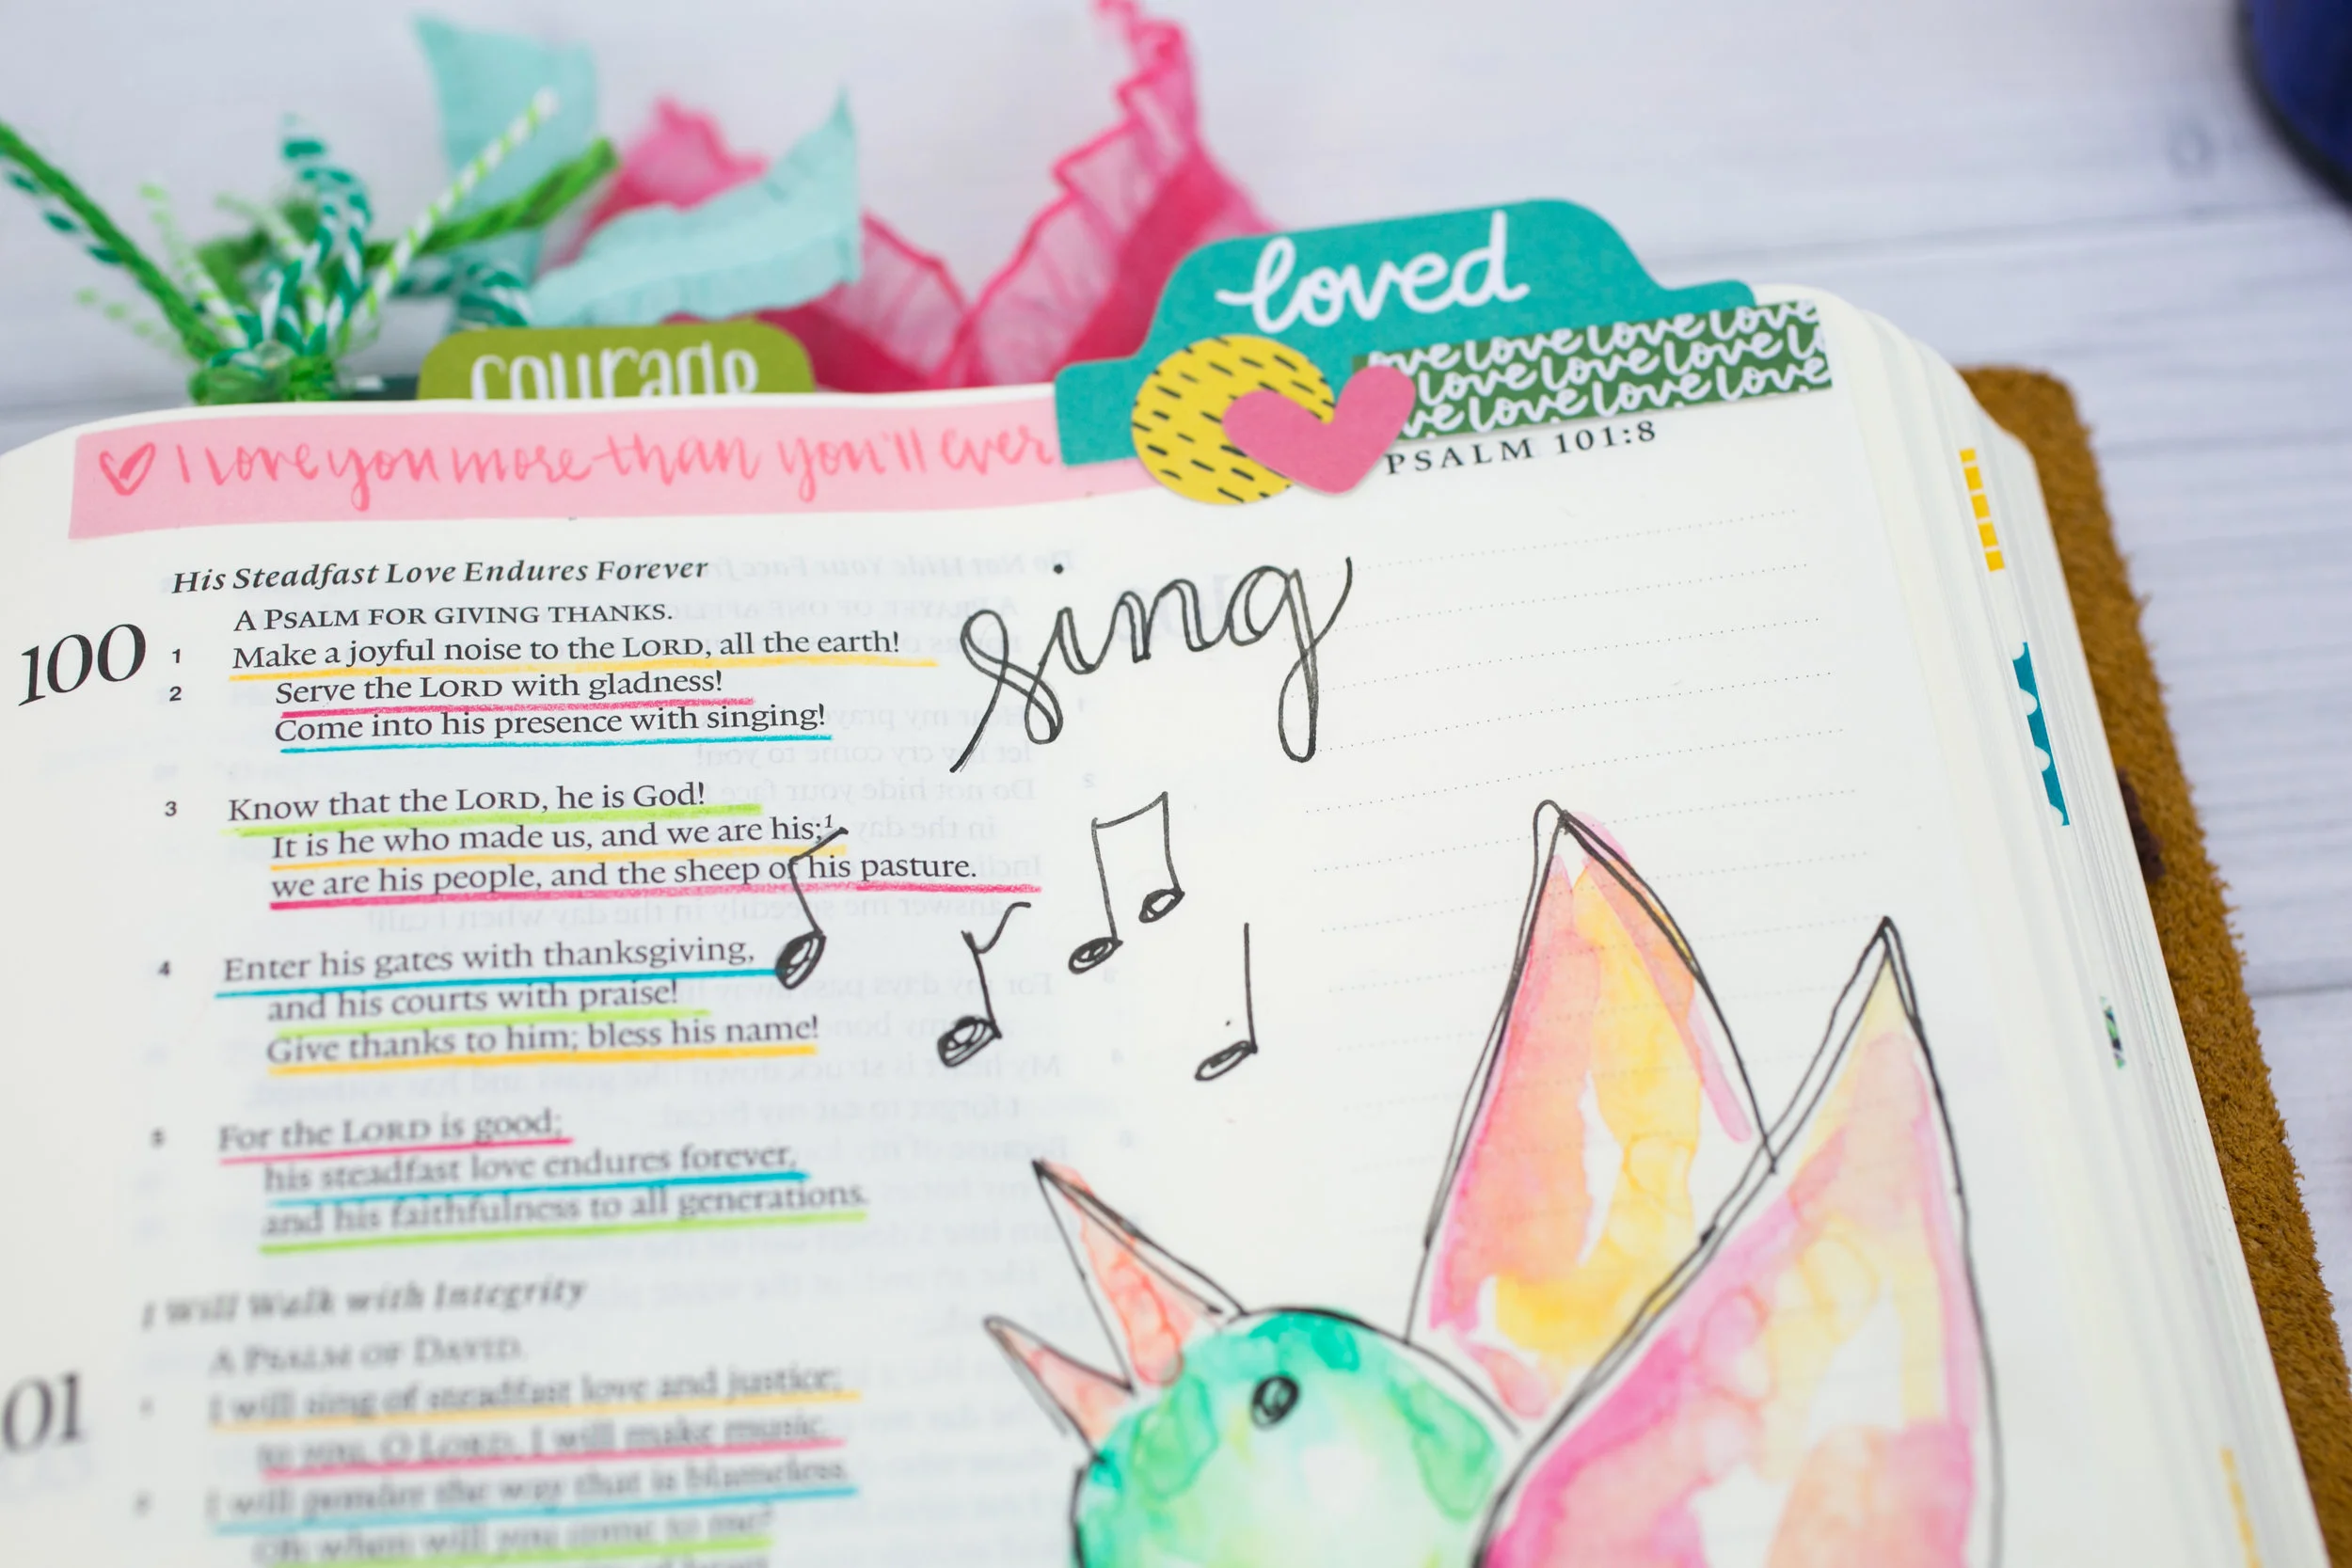 loved
courage
love love love love
love love love love
love love love love
I love you more than you'll ever
PSALM 101:8
His Steadfast Love Endures Forever
100
A PSALM FOR GIVING THANKS.
1 Make a joyful noise to the LORD, all the earth!
2 Serve the LORD with gladness!
Come into his presence with singing!
sing
3 Know that the LORD, he is God!
It is he who made us, and we are his;¹
we are his people, and the sheep of his pasture.
4 Enter his gates with thanksgiving,
and his courts with praise!
Give thanks to him; bless his name!
5 For the LORD is good;
his steadfast love endures forever,
and his faithfulness to all generations.
I Will Walk with Integrity
A PSALM OF DAVID.
01
1 I will sing of steadfast love and justice;
to you, O LORD, I will make music.
2 I will ponder the way that is blameless.
Oh when will you come to me?